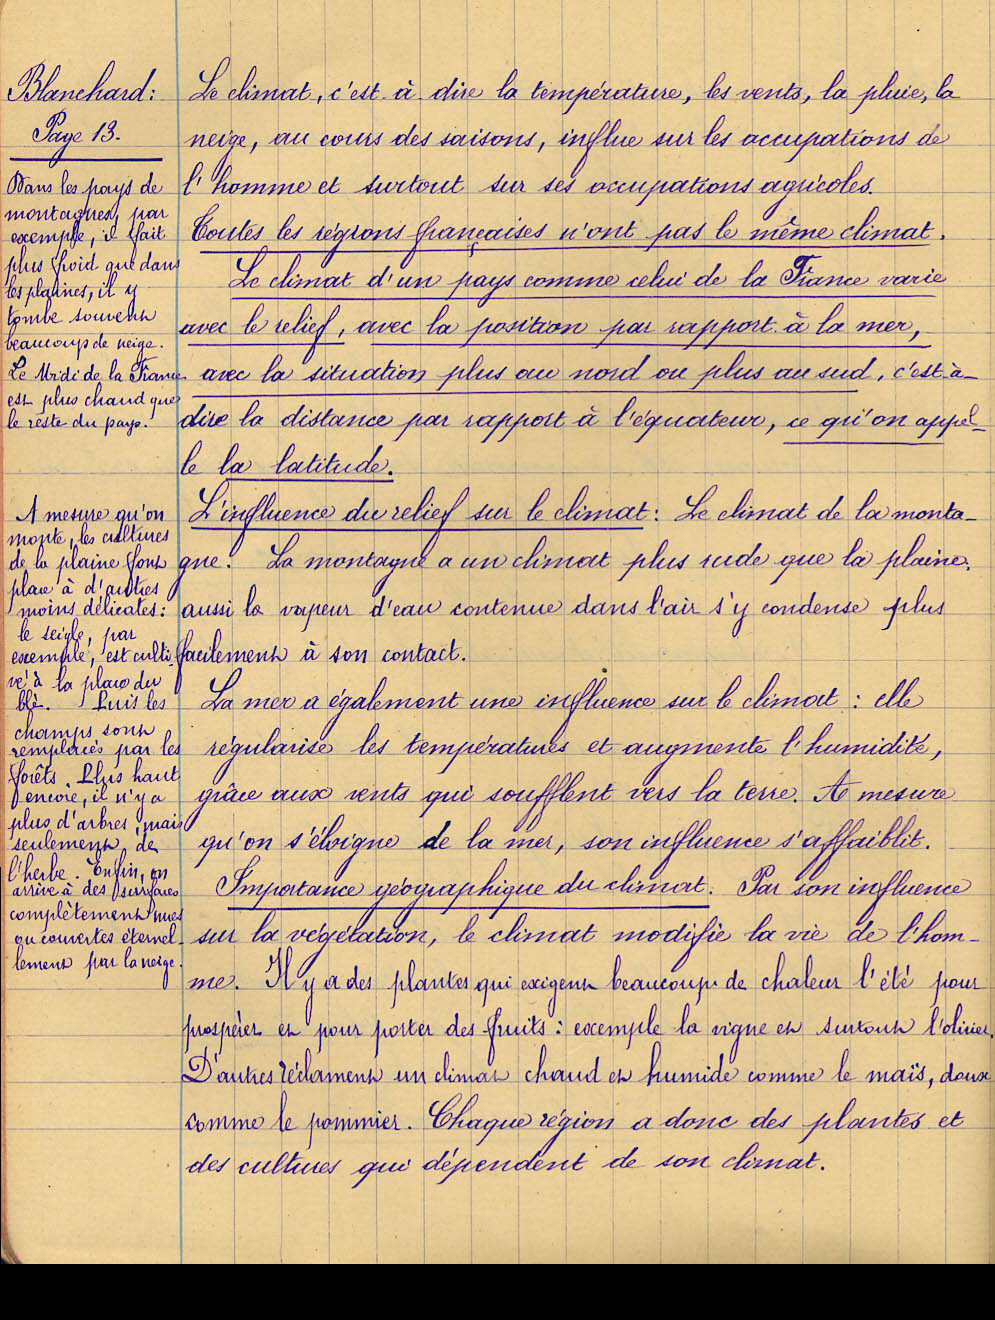 Blanchard:
Page 13.
Dans les pays de
montagnes, par
exemple, il fait
plus froid que dans
les plaines, il y
tombe souvent
beaucoup de neige.
Le Midi de la France
est plus chaud que
le reste du pays.
A mesure qu'on
monte, les cultures
de la plaine font
place à d'autres
moins délicates :
le seigle, par
exemple, est culti-
vé à la place du
blé. Puis les
champs sont
remplacés par les
forêts. Plus haut
encore, il n'y a
plus d'arbres, mais
seulement, de
l'herbe. Enfin, on
arrive à des surfaces
complètement nues
ou couvertes éternel-
lement par la neige.
Le climat, c'est à dire la température, les vents, la pluie, la
neige, au cours des saisons, influe sur les occupations de
l'homme et surtout sur ses occupations agricoles.
Toutes les régions françaises n'ont pas le même climat.
Le climat d'un pays comme celui de la France varie
avec le relief, avec la position par rapport à la mer,
avec la situation plus au nord ou plus au sud, c'est-à-
dire la distance par rapport à l'équateur, ce qu'on appel-
le la latitude.
L'influence du relief sur le climat : Le climat de la monta-
gne. La montagne a un climat plus rude que la plaine,
aussi la vapeur d'eau contenue dans l'air s'y condense plus
facilement à son contact.
La mer a également une influence sur le climat : elle
régularise les températures et augmente l'humidité,
grâce aux vents qui soufflent vers la terre. A mesure
qu'on s'éloigne de la mer, son influence s'affaiblit.
Importance géographique du climat. Par son influence
sur la végétation, le climat modifie la vie de l'hom-
me. Il y a des plantes qui exigent beaucoup de chaleur l'été pour
prospérer et pour porter des fruits : exemple la vigne et surtout l'olivier.
D'autres réclament un climat chaud et humide comme le maïs, doux
comme le pommier. Chaque région a donc des plantes et
des cultures qui dépendent de son climat.